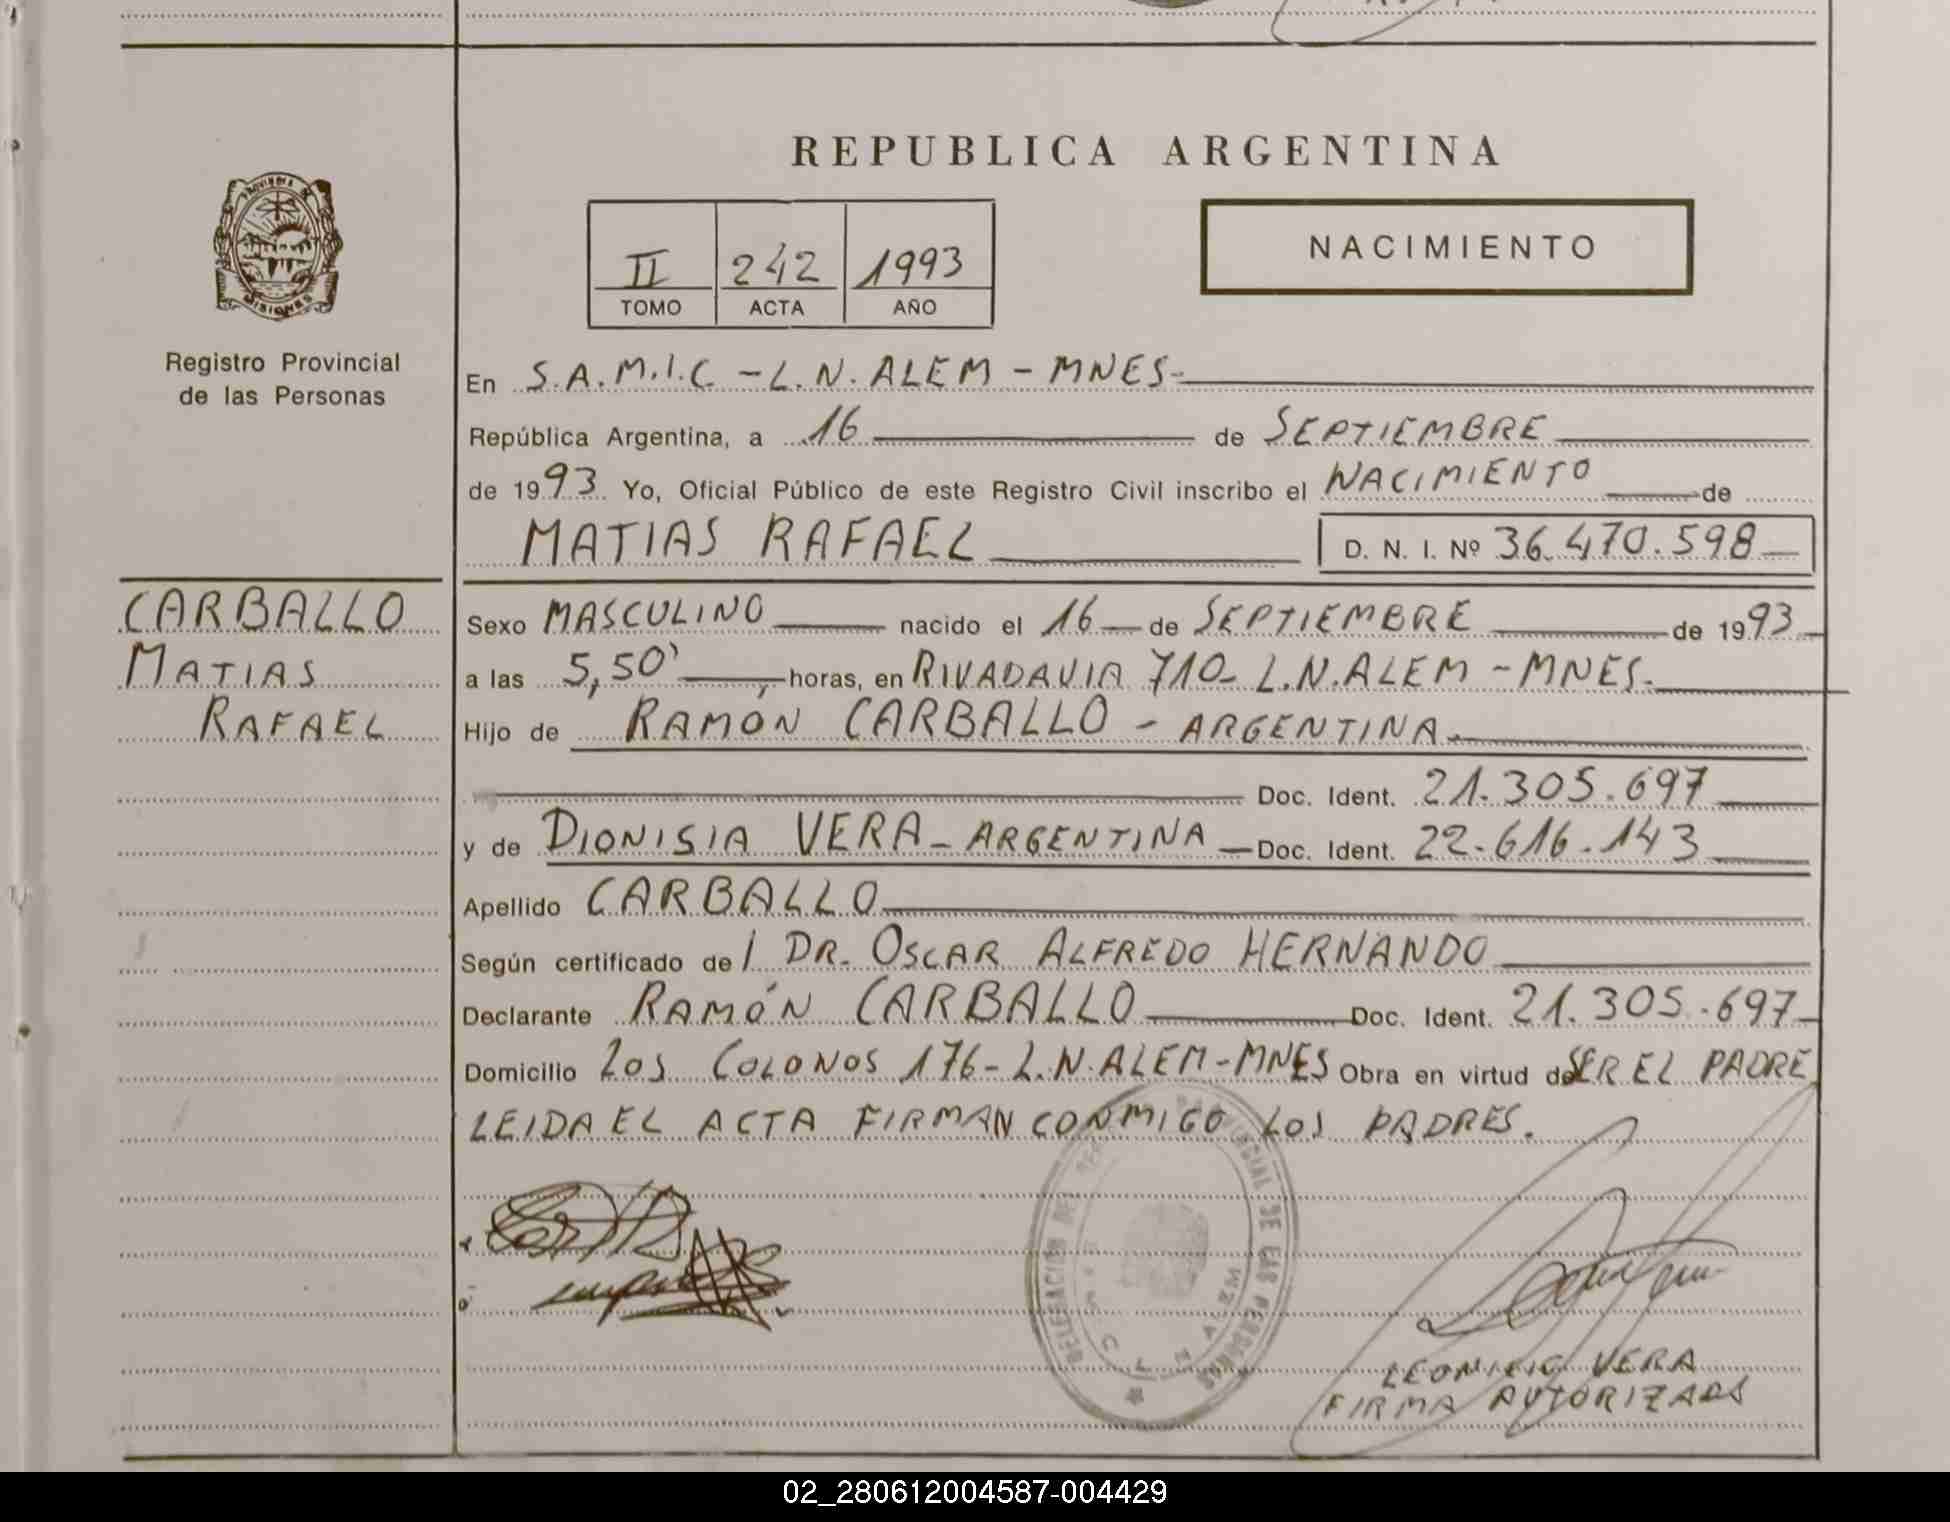 REPUBLICA ARGENTINA
PROVINCIA DE
MISIONES
Registro Provincial
de las Personas
II 242 1993
TOMO ACTA AÑO
NACIMIENTO
En S.A.M.I.C. - L.N. ALEM - MNES-
República Argentina, a 16 de SEPTIEMBRE
de 1993 Yo, Oficial Público de este Registro Civil inscribo el NACIMIENTO de
MATIAS RAFAEL D. N. I. Nº 36.470.598
CARBALLO
MATIAS
RAFAEL
Sexo MASCULINO nacido el 16 de SEPTIEMBRE de 1993
a las 5,50' horas, en RIVADAVIA 710- L.N.ALEM - MNES.
Hijo de RAMÓN CARBALLO - ARGENTINA.
Doc. Ident. 21.305.697
y de DIONISIA VERA - ARGENTINA - Doc. Ident. 22.616.143
Apellido CARBALLO
Según certificado de l DR. OSCAR ALFREDO HERNANDO
Declarante RAMÓN CARBALLO Doc. Ident. 21.305.697
Domicilio LOS COLONOS 176- L.N.ALEM-MNES Obra en virtud de SER EL PADRE
LEIDA EL ACTA FIRMAN CONMIGO LOS PADRES.
DELEGACIÓN DEL PROVINCIAL DE LAS PERSONAS
VERA
FIRMA AUTORIZADA
02_280612004587-004429